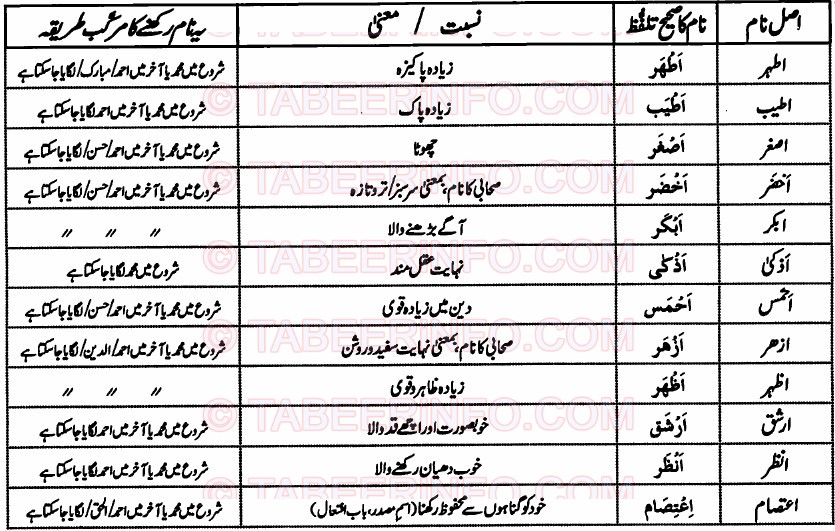 اصل نام	نام کا صحیح تلفّظ	نسبت / معنیٰ	یہ نام رکھنے کا مرکّب طریقہ
اطہر	اَطْهَر	زیادہ پاکیزہ	شروع میں محمد یا آخر میں احمد/مبارک/لگایا جاسکتا ہے
اطیب	اَطْیَب	زیادہ پاک	شروع میں محمد یا آخر میں احمد لگایا جاسکتا ہے
اصغر	اَصْغَر	چھوٹا	شروع میں محمد یا آخر میں احمد/حسن/لگایا جاسکتا ہے
اَخضَر	اَخْضَر	صحابی کا نام، بمعنیٰ سرسبز/تروتازہ	شروع میں محمد یا آخر میں احمد/حسن/لگایا جاسکتا ہے
ابکر	اَبْکَر	آگے بڑھنے والا	〃 〃 〃
اَذکیٰ	اَذْکٰی	نہایت عقل مند	شروع میں محمد لگایا جاسکتا ہے
اَحْمس	اَحْمَس	دین میں زیادہ قوی	شروع میں محمد یا آخر میں احمد/حسن/لگایا جاسکتا ہے
ازھر	اَزْهَر	صحابی کا نام، بمعنیٰ نہایت سفید و روشن	شروع میں محمد یا آخر میں احمد/الدین/لگایا جاسکتا ہے
اظہر	اَظْهَر	زیادہ ظاہر و قوی	〃 〃 〃
ارشق	اَرْشَق	خوبصورت اور اچھے قد والا	شروع میں محمد یا آخر میں احمد لگایا جاسکتا ہے
انظر	اَنْظَر	خوب دھیان رکھنے والا	شروع میں محمد یا آخر میں احمد لگایا جاسکتا ہے
اعتصام	اِعْتِصَام	خود کو گناہوں سے محفوظ رکھنا (اسمِ مصدر، باب افتعال)	شروع میں محمد یا آخر میں احمد/الحق/لگایا جاسکتا ہے
© TABEERINFO.COM
© TABEERINFO.COM
© TABEERINFO.COM
© TABEERINFO.COM
© TABEERINFO.COM
© TABEERINFO.COM